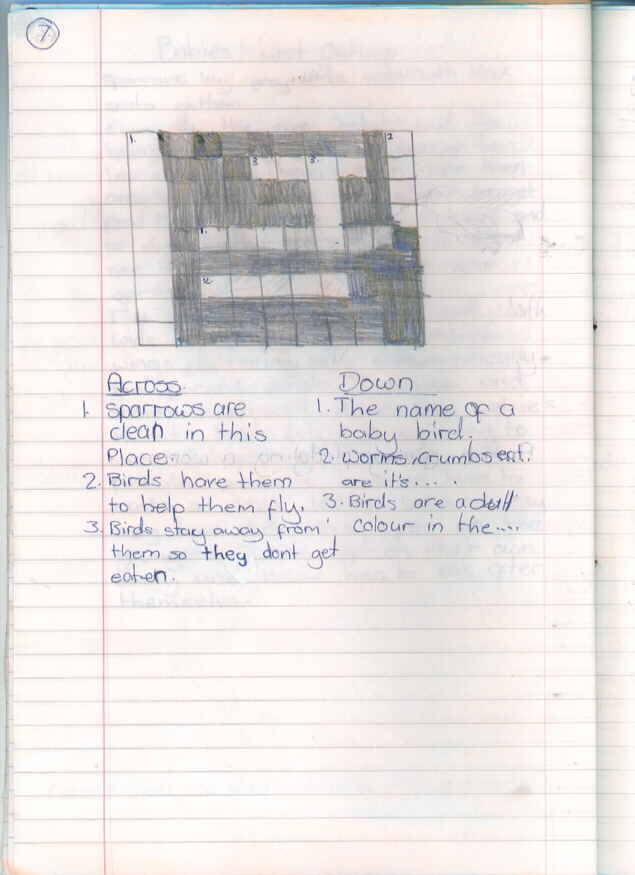 7
1. 2
3 3.
1.
2.
Across.
1. Sparrows are
clean in this
Place
2. Birds have them
to help them fly.
3. Birds stay away from
them so they dont get
eaten.
Down
1. The name of a
baby bird.
2. worms, crumbs ect.
are it's....
3. Birds are a dull
colour in the....